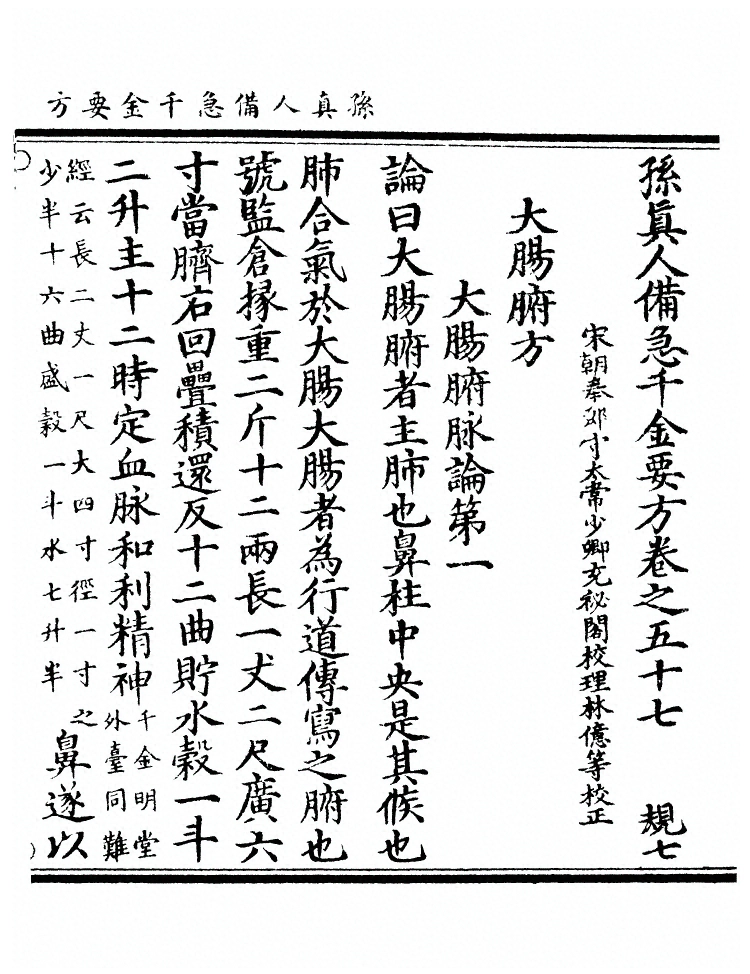 孫真人備急千金要方
孫眞人備急千金要方卷之五十七 規七
宋朝奉郎守太常少卿充祕閣校理林億等校正
大腸腑方
大腸腑脉論第一
論曰大腸腑者主肺也鼻柱中央是其候也
肺合氣於大腸大腸者為行道傳寫之腑也
號監倉掾重二斤十二兩長一丈二尺廣六
寸當臍右回疊積還反十二曲貯水穀一斗
二升主十二時定血脉和利精神千金明堂外臺同難
經云長二丈一尺大四寸徑一寸之少半十六曲盛穀一斗水七升半鼻遂以